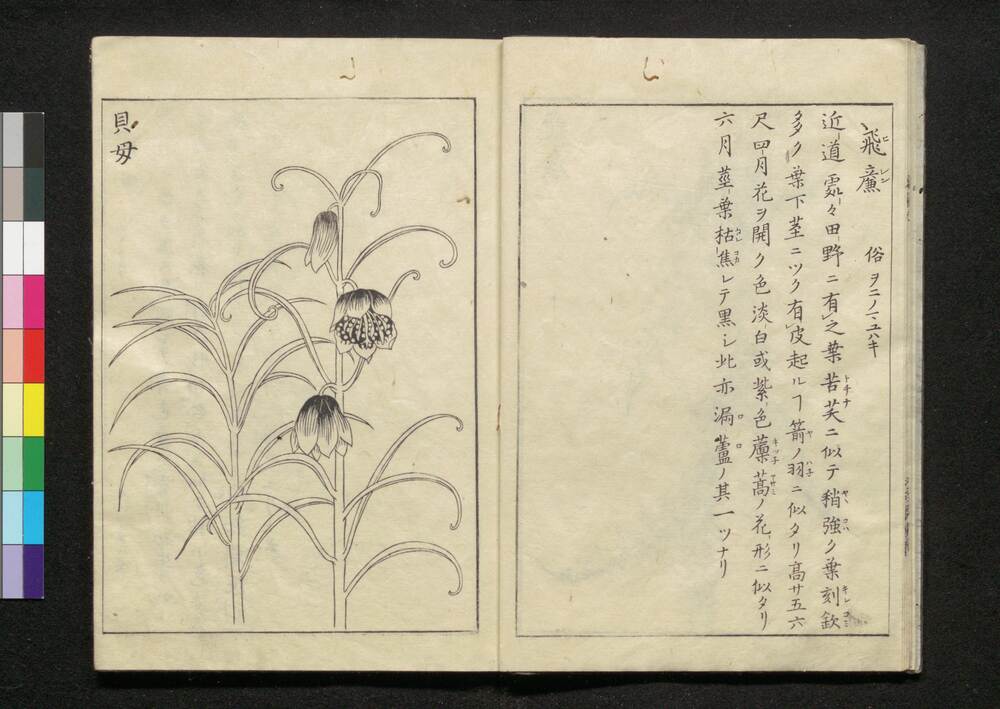 飛廉 ヒレン 俗 ヲニノマユハキ
近道處々田野ニ有之葉苦芺ニ似テ稍強ク葉刻欽
多ク葉下莖ニツク有皮起ルヿ箭ノ羽ニ似タリ高サ五六
尺四月花ヲ開ク色淡白或紫色藁蒿ノ花形ニ似タリ
六月莖葉枯焦レテ黒シ此亦漏蘆ノ其一ツナリ
貝母